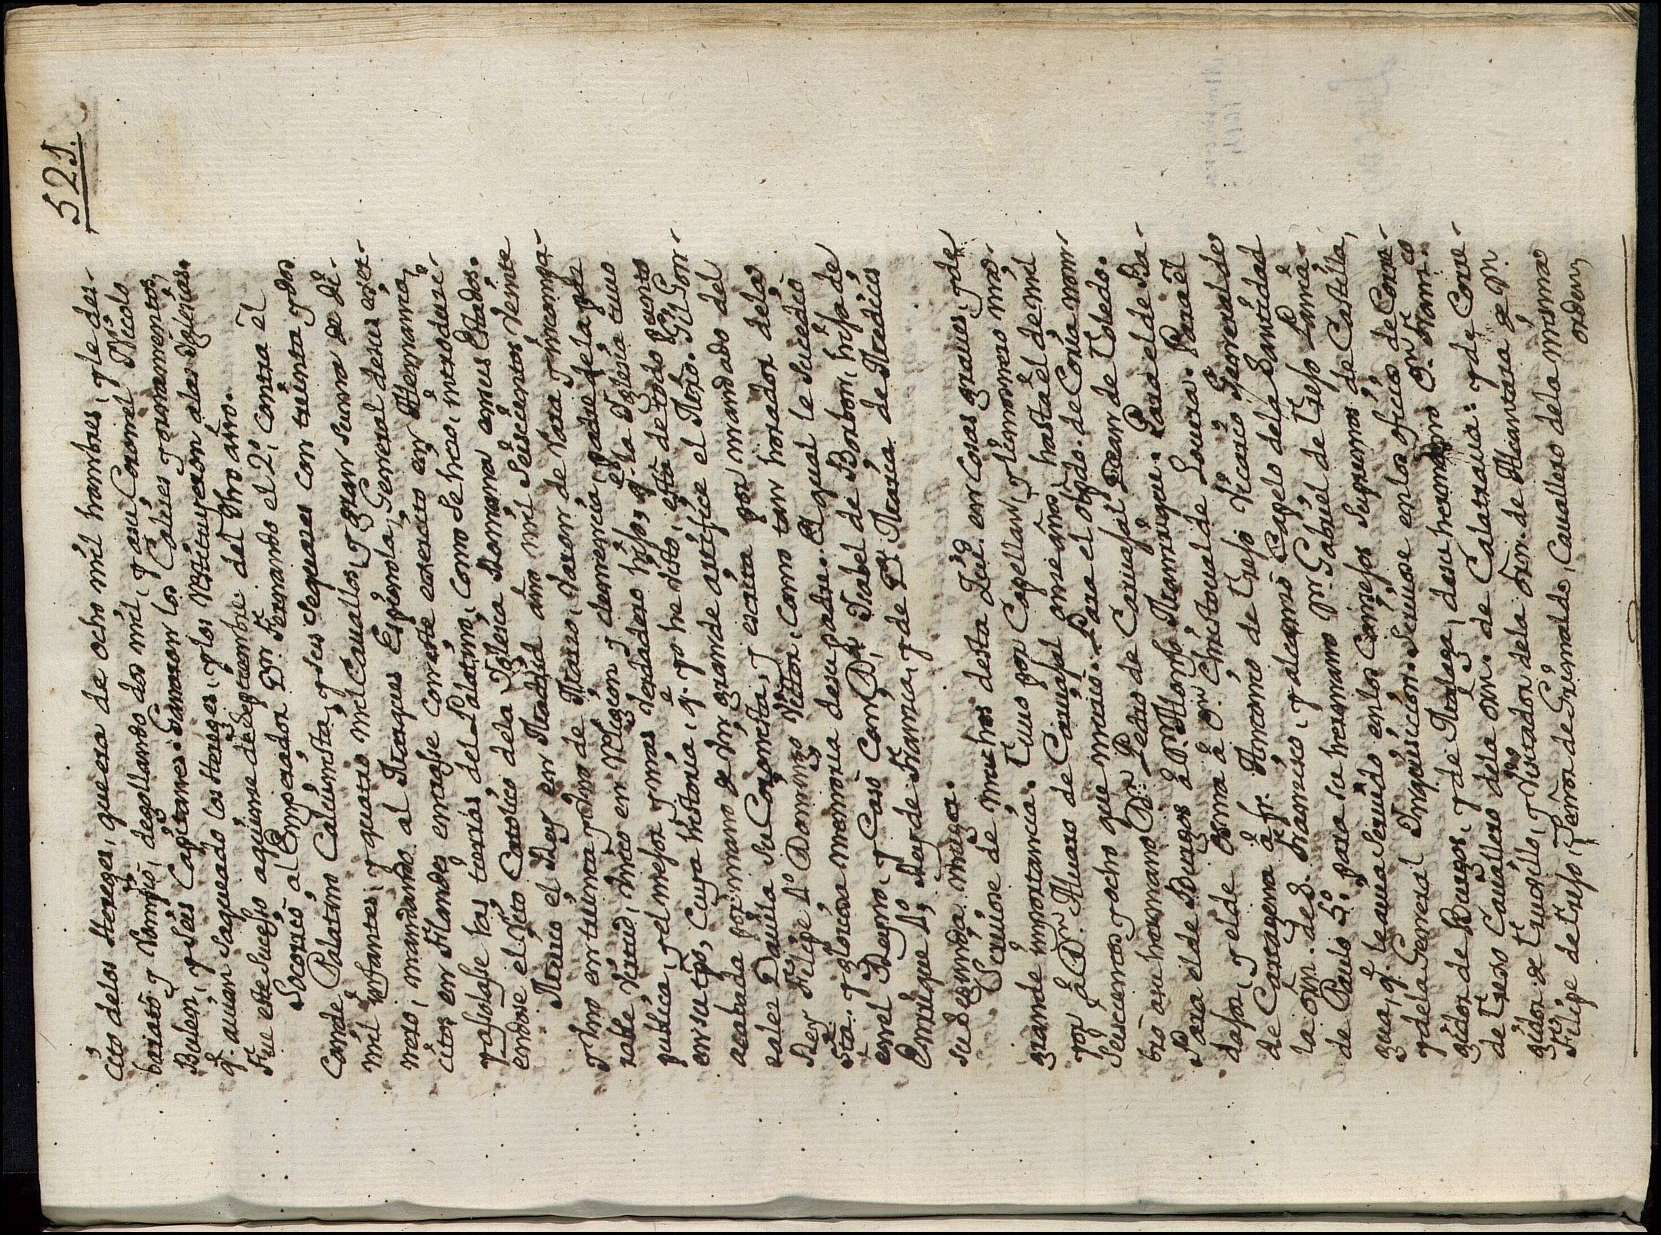 521.
cito delos Hereges, que era de ocho mil hombres, y le des-
barató y Rompió, degollando dos mil, y a su Coronel Nicolo
Bulen, y Seis Capitanes. Ganaron los Calices y ornamentos,
q. auian saqueado los Hereges, y los Restituyeron alas Yglesias.
Fue este sucesso a quinze de Septiembre del dho año.
Socorrió al Emperador Dn. Fernando el 2º, contra el
Conde Palatino Caluinista, y sus sequazes con treinta y dos
mil infantes, y quatro mil Cauallos, y gran suma de di-
nero, mandando al Marques Espinola, General de sus exer-
citos en Flandes encaxe con este exercito en Alemania,
y assolasse las tierras del Palatino, como se hizo, metodizi-
endose el Rito Catolico dela Yglesia Romana en sus Estados.
Murio el Rey en Madrid año mil Seiscientos Veinte
y Vno en treinta y Vno de Marzo, Varon de Rara y memora-
ble Virtud, Vnico en Religion y clemencia, padre dela
publica, y el mejor y mas verdadero hijo, q. la Yglesia tuuo
en su tpo, cuya historia, q. yo he visto, está de todo punto
acabada por mano de Vn grande artifice el Mro. Gil Gon-
zalez Dauila su Coronista, y escrita por mandado del
Rey Filipe 4º Domingo Victor, como tan honrador dela
sta. y gloriosa memoria de su padre. El qual le sucedió
en el Reyno, y Casó con Dª Ysabel de Borbon, hija de
Enrique 4º, Rey de Francia, y de Dª Maria de Medicis
su segunda muger.
Siruiose de muchos desta Ciud. en cosas graues, y de
grande importancia. Tuuo por Capellan, y limosnero ma-
yor à Dn. Aluaro de Carauajal onze años, hasta el de mil
Seiscientos y ocho que murió. Para el obpdo. de Coria nom-
bró a su hermano Dn. Pedro de Carauajal Dean de Toledo.
Para el de Burgos à Dn. Alonso Manrrique. Para el de Ba-
dajoz, y el de Osma à Dn. Christoual de Louera. Para el
de Cartagena à fr. Antonio de Trejo Vicario General de
la orn. de S. Francisco, y alcanzó Capelo dela Santidad
de Paulo 5º para su hermano Dn. Gabriel de Trejo Pania-
gua, q. le auia seruido en los Consejos Supremos de Castilla,
y dela General Inquisicion. Siruiose en los oficios de Corre-
gidor de Burgos, y de Malaga, de su hermano Dn. Franco
de Trejo Cauallero dela orn. de Calatraua: y de Corre-
gidor de Truxillo, y Visitador dela orn. de Alcantara de Dn.
Filipe de Trejo, Señor de Grimaldo, Cauallero dela misma
orden,